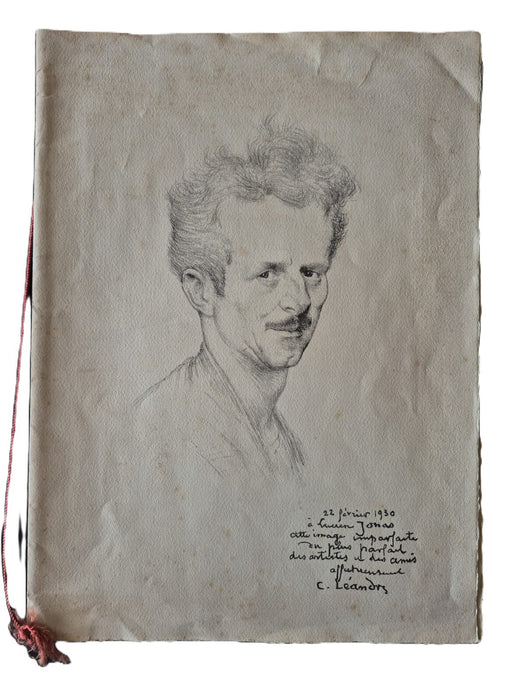 22 février 1930
à Lucien Jonas
cette image imparfaite
du plus parfait
des artistes et des amis
affectueusement
C. Léandre